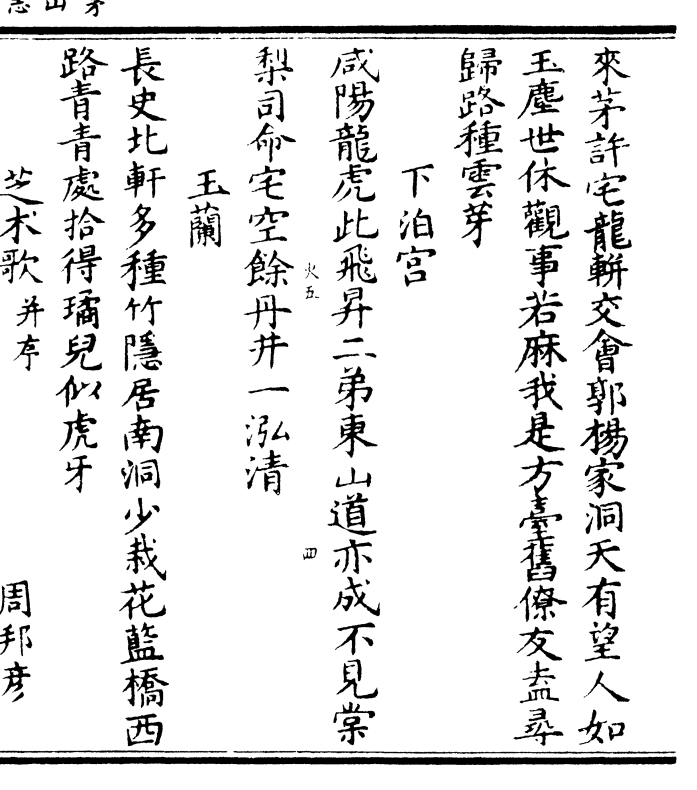 來茅許宅龍輧交會郭楊家洞天有望人如
玉塵世休觀事若麻我是方臺舊僚友盍尋
歸路種雲芽
下泊宮
咸陽龍虎此飛昇二弟東山道亦成不見棠
火五
四
梨司命宅空餘丹井一泓清
玉蘭
長史北軒多種竹隱居南洞少栽花藍橋西
路青青處拾得璚兒似虎牙
芝术歌并亭 周邦彦